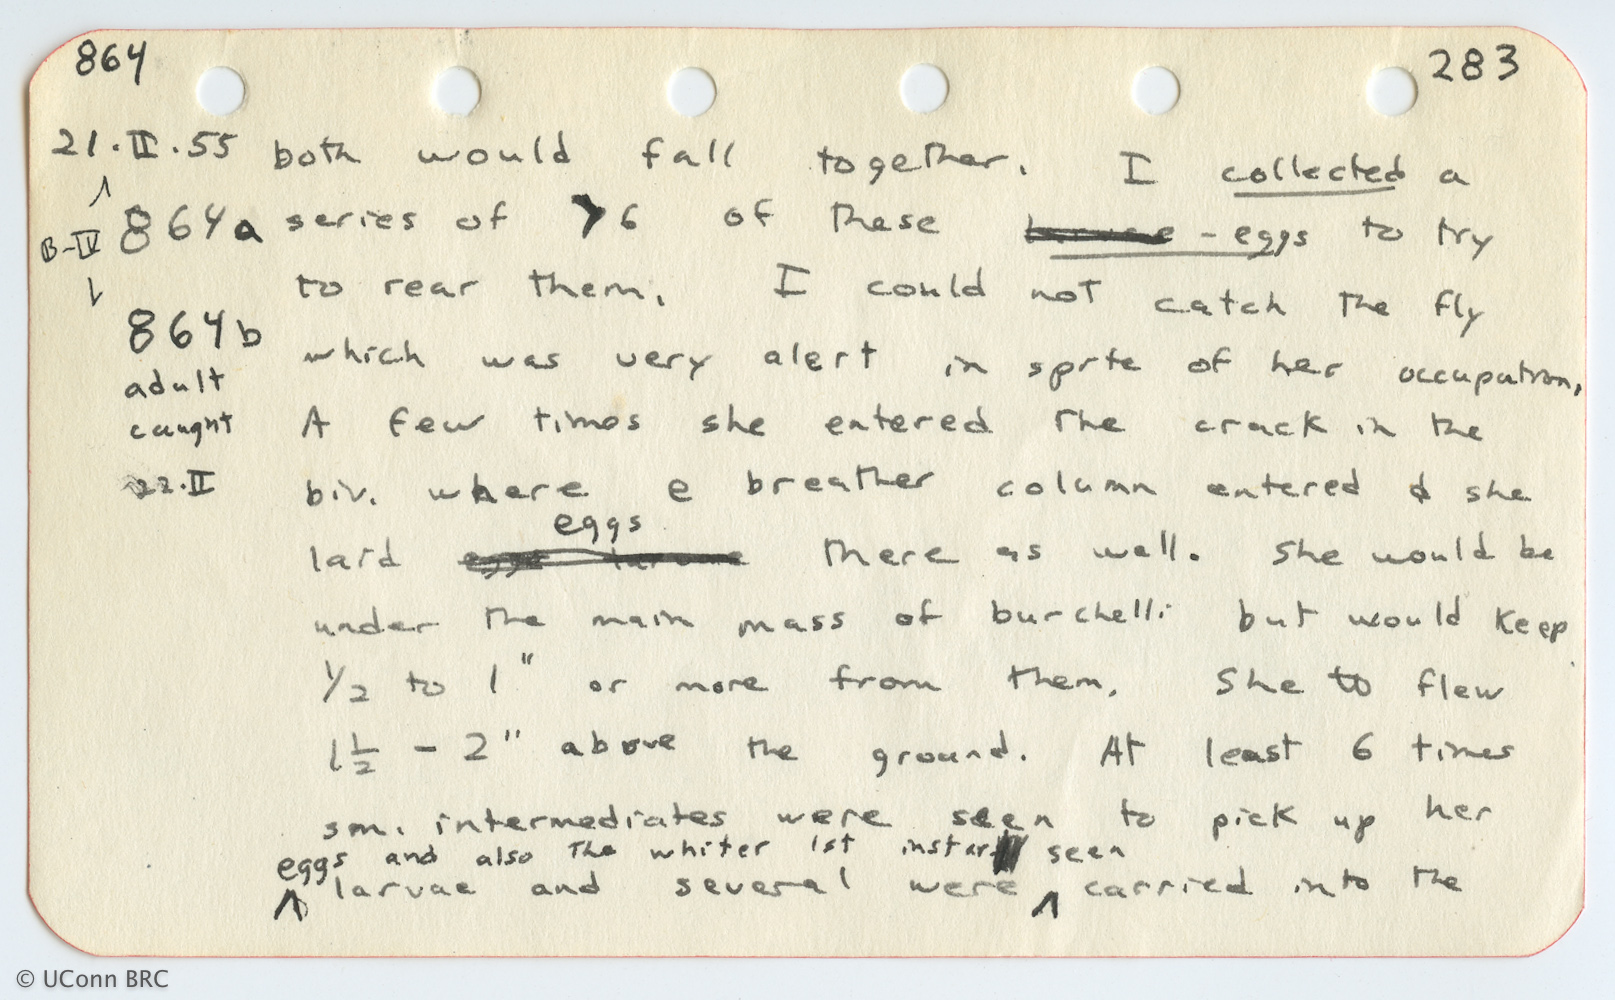 864 283
21.II.55 both would fall together. I collected a
864a series of >6 of these larvae - eggs to try
B-IV
to rear them. I could not catch the fly
864b
which was very alert in spite of her occupation.
adult
caught A few times she entered the crack in the
22.II biv. where e breather column entered & she
eggs
laid eggs larvae there as well. She would be
under the main mass of burchelli but would keep
1/2 to 1" or more from them. She to flew
1 1/2 - 2" above the ground. At least 6 times
sm. intermediates were seen to pick up her
eggs and also the whiter 1st instar seen
larvae and several were carried into the
© UConn BRC